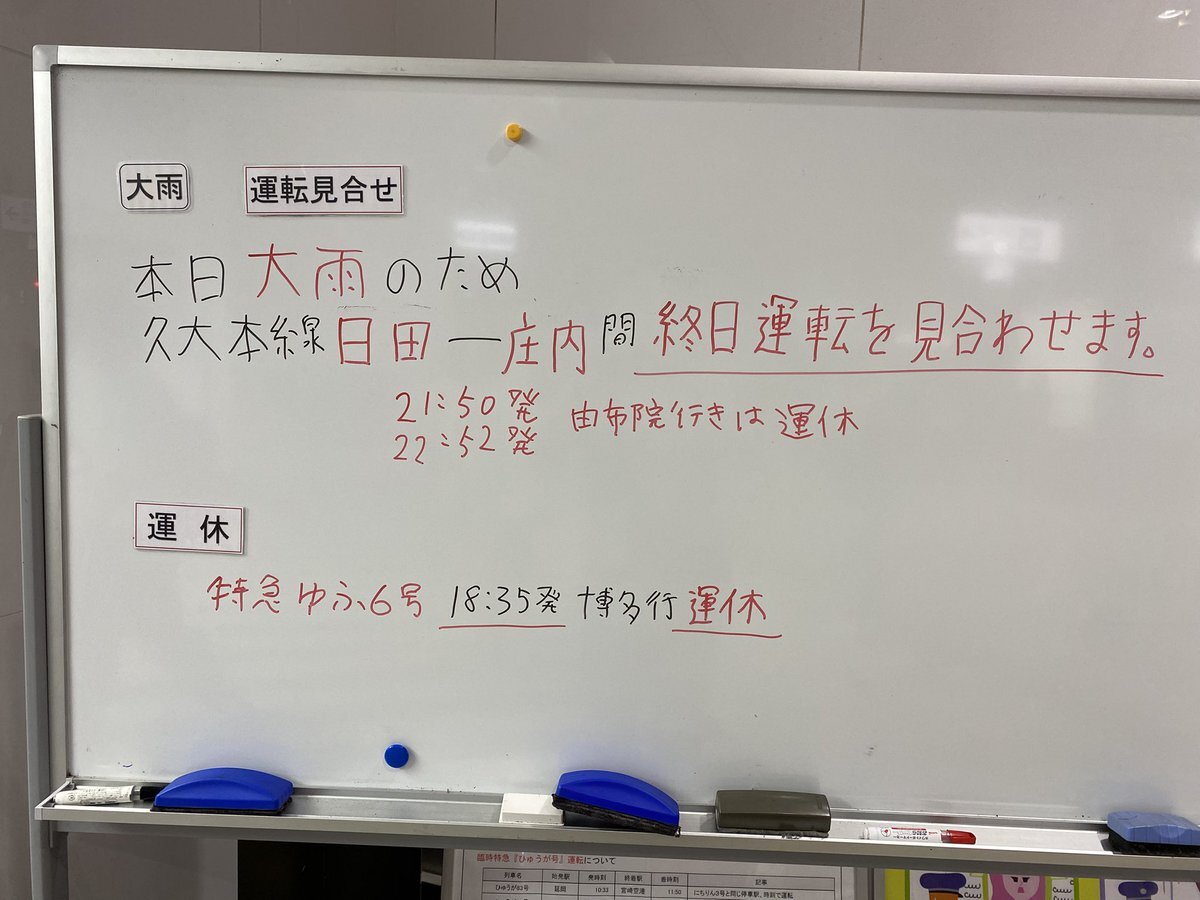 大雨 運転見合せ
本日大雨のため
久大本線日田ー庄内間 終日運転を見合わせます。
21:50発
22:52発 由布院行きは運休
運休
特急ゆふ6号 18:35発 博多行 運休
臨時特急『ひゅうが号』運転について
列車名 始発駅 発時刻 終着駅 着時刻 記事
ひゅうが83号 延岡 10:33 宮崎空港 11:50 にちりん3号と同じ停車駅、時刻で運転